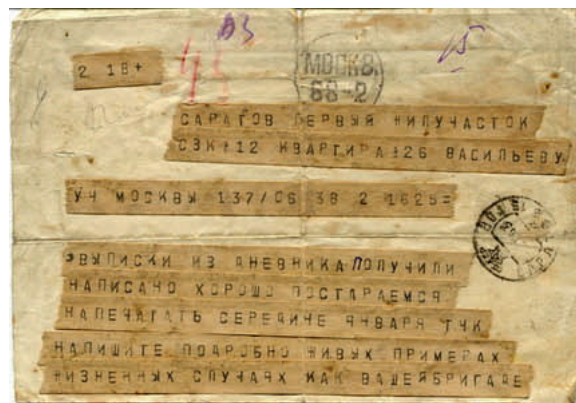 2 18+
МОСКВ.
68-2
САРАТОВ ПЕРВЫЙ ЖИЛУЧАСТОК
СЗК 12 КВАРТИРА 126 ВАСИЛЬЕВУ
УЧ МОСКВЫ 137/06 38 2 1625=
ВЫПИСКИ ИЗ ДНЕВНИКА ПОЛУЧИЛИ
НАПИСАНО ХОРОШО ПОСТАРАЕМСЯ
НАПЕЧАТАТЬ СЕРЕДИНЕ ЯНВАРЯ ТЧК
НАПИШИТЕ ПОДРОБНО ЖИВЫХ ПРИМЕРАХ
ЖИЗНЕННЫХ СЛУЧАЯХ КАК ВАШЕЙБРИГАДЕ